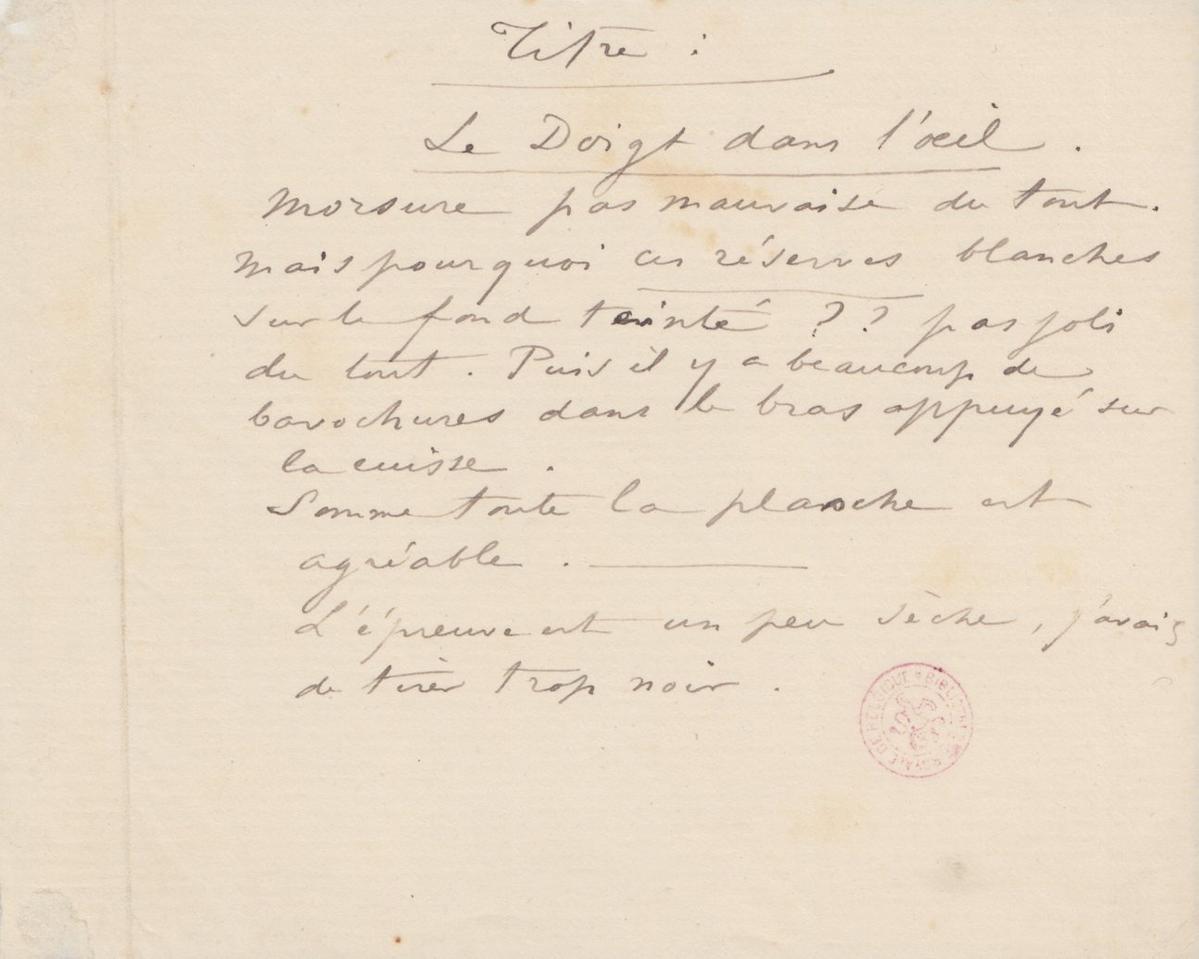 Titre :
Le Doigt dans l'œil.
Morsure pas mauvaise du tout.
Mais pourquoi ces réserves blanches
sur le fond teinté ?? pas joli
du tout. Puis il y a beaucoup de
bavochures dans le bras appuyé sur
la cuisse.
Somme toute la planche est
agréable. —
L'épreuve est un peu sèche, j'avais
de tirer trop noir.
BIBLIOTHÈQUE ROYALE DE BELGIQUE